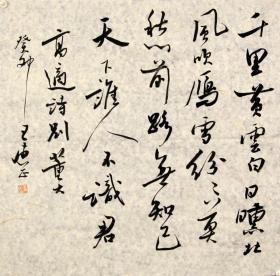 千里黄雲白日曛北
風吹鴈雪紛々莫
愁前路無知己
天下誰人不識君
高適詩別董大
癸卯 王